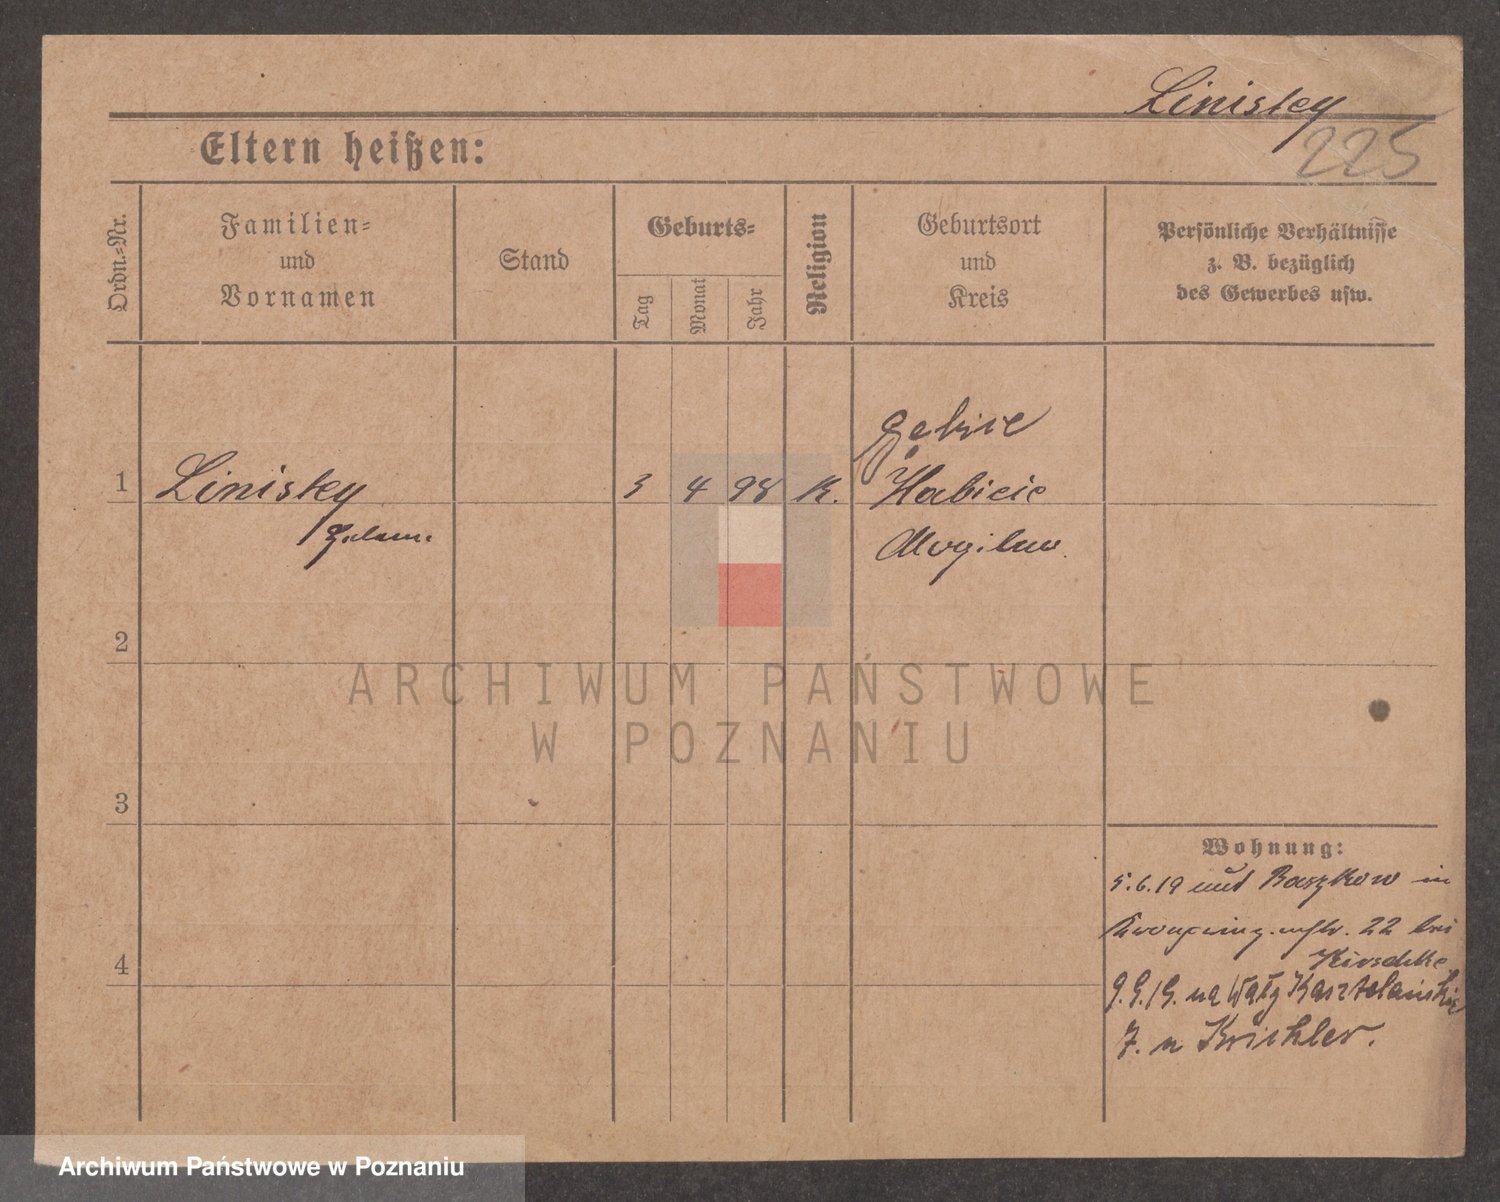 Linisky
225
Eltern heißen:
Ordn.-Nr.
Familien-
und
Vornamen
Stand
Geburts-
Tag
Monat
Jahr
Religion
Geburtsort
und
Kreis
Persönliche Verhältnisse
z. B. bezüglich
des Gewerbes usw.
Gębice
1 Linisky 3 4 98 K. Habicie
Mogilno
2
3
4
Wohnung:
5.6.19 aus Raszkow in
22 bei
Kirschke
9.9.19. na Wały Kasztelańskie
7. u Krichler.
ARCHIWUM PAŃSTWOWE
W POZNANIU
Archiwum Państwowe w Poznaniu